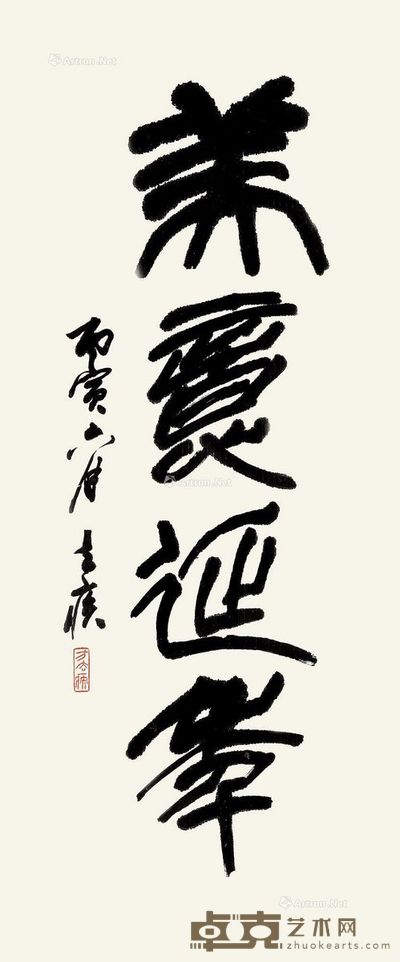 美意延年
丙寅六月 去疾
方去疾
Artron.Net
Artron.Net
Artron.Net
卓克艺术网
zhuokearts.com